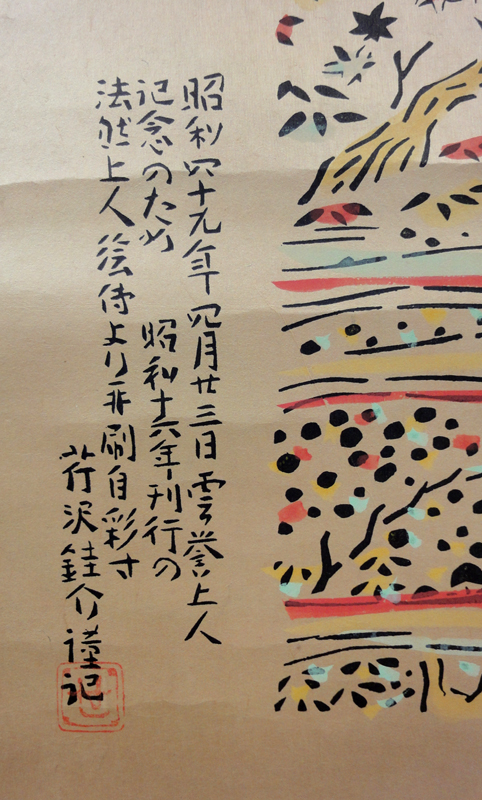 昭和四十九年四月廿三日雲誉上人
記念のため 昭和十六年刊行の
法然上人絵伝より再刷自彩す
芹沢銈介謹記